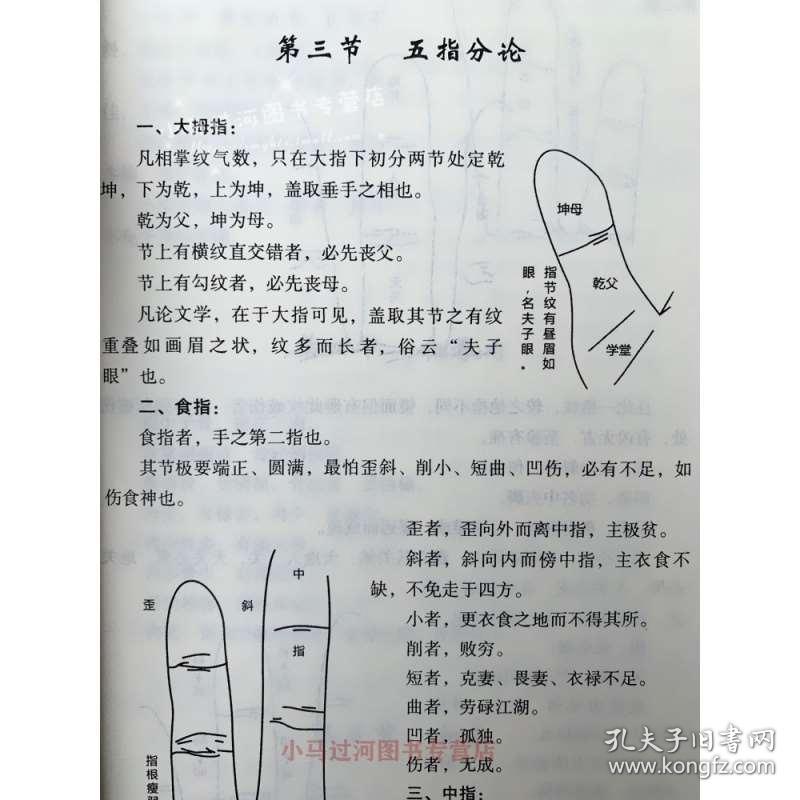 第三节 五指分论
一、大拇指：
凡相掌纹气数，只在大指下初分两节处定乾
坤，下为乾，上为坤，盖取垂手之相也。
乾为父，坤为母。
节上有横纹直交错者，必先丧父。
节上有勾纹者，必先丧母。
凡论文学，在于大指可见，盖取其节之有纹
重叠如画眉之状，纹多而长者，俗云“夫子
眼”也。
坤母
乾父
学堂
指节纹有昼眉如
眼，名夫子眼。
二、食指：
食指者，手之第二指也。
其节极要端正、圆满，最怕歪斜、削小、短曲、凹伤，必有不足，如
伤食神也。
歪者，歪向外而离中指，主极贫。
斜者，斜向内而傍中指，主衣食不
缺，不免走于四方。
小者，更衣食之地而不得其所。
削者，败穷。
短者，克妻、畏妻、衣禄不足。
曲者，劳碌江湖。
凹者，孤独。
伤者，无成。
三、中指：
歪
斜
中
指
指根瘦
小马过河图书专营店
孔夫子旧书网
www.kongfz.com